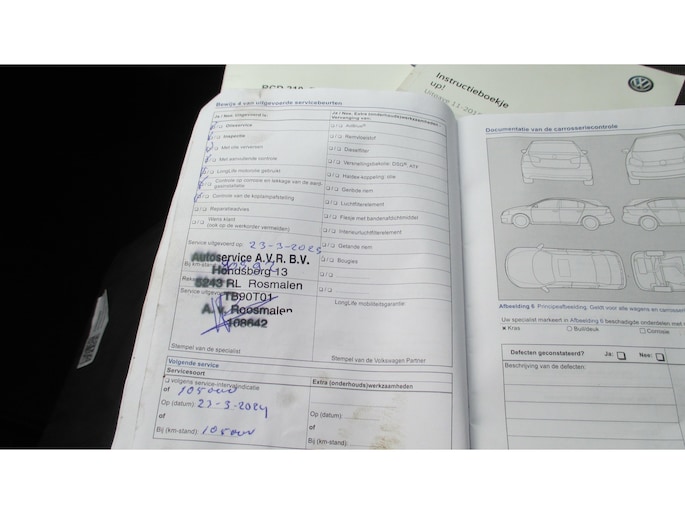 Instructieboekje
up!
Bewijs 4 van uitgevoerde servicebeurten
Ja / Nee, Uitgevoerd is:
Olieservice
Inspectie
Met olie verversen
Met aanvullende controle
LongLife motorolie gebruikt
Controle op conditie en lekkage van de aard-
gasinstallatie
Controle van de koplampafstelling
Reparatieadvies
Wens klant
(ook op de werkorder vermelden)
Service uitgevoerd op: 23-3-2023
Autoservice A.V.R. B.V.
Bij km-stand
Hondsberg 13
5243 RL Rosmalen
Service uitgevoerd
TB90T01
A. v. Roosmalen
108642
Stempel van de specialist
Ja / Nee, Extra (onderhouds)werkzaamheden
Vervanging van:
AdBlue®
Remvloeistof
Dieselfilter
Versnellingsbakolie: DSG®, AT6
Haldex-koppeling: olie
Geribde riem
Luchtfilterelement
Flesje met bandenafdichtmiddel
Interieurluchtfilterelement
Getande riem
Bougies
LongLife mobiliteitsgarantie
Stempel van de Volkswagen Partner
Volgende service
Servicesoort
volgens service-intervalindicatie
of 105000
Op (datum): 23-3-2024
of
Bij (km-stand): 105000
Extra (onderhouds)werkzaamheden
Op (datum):
of
Bij (km-stand):
Documentatie van de carrosseriecontrole
Afbeelding 5 Principeafbeelding. Geldt voor alle wagens en carrosserie
Uw specialist markeert in Afbeelding 6 beschadigde onderdelen met
x Kras
Buil/deuk
Corrosie
Defecten geconstateerd? Ja: Nee:
Beschrijving van de defecten: